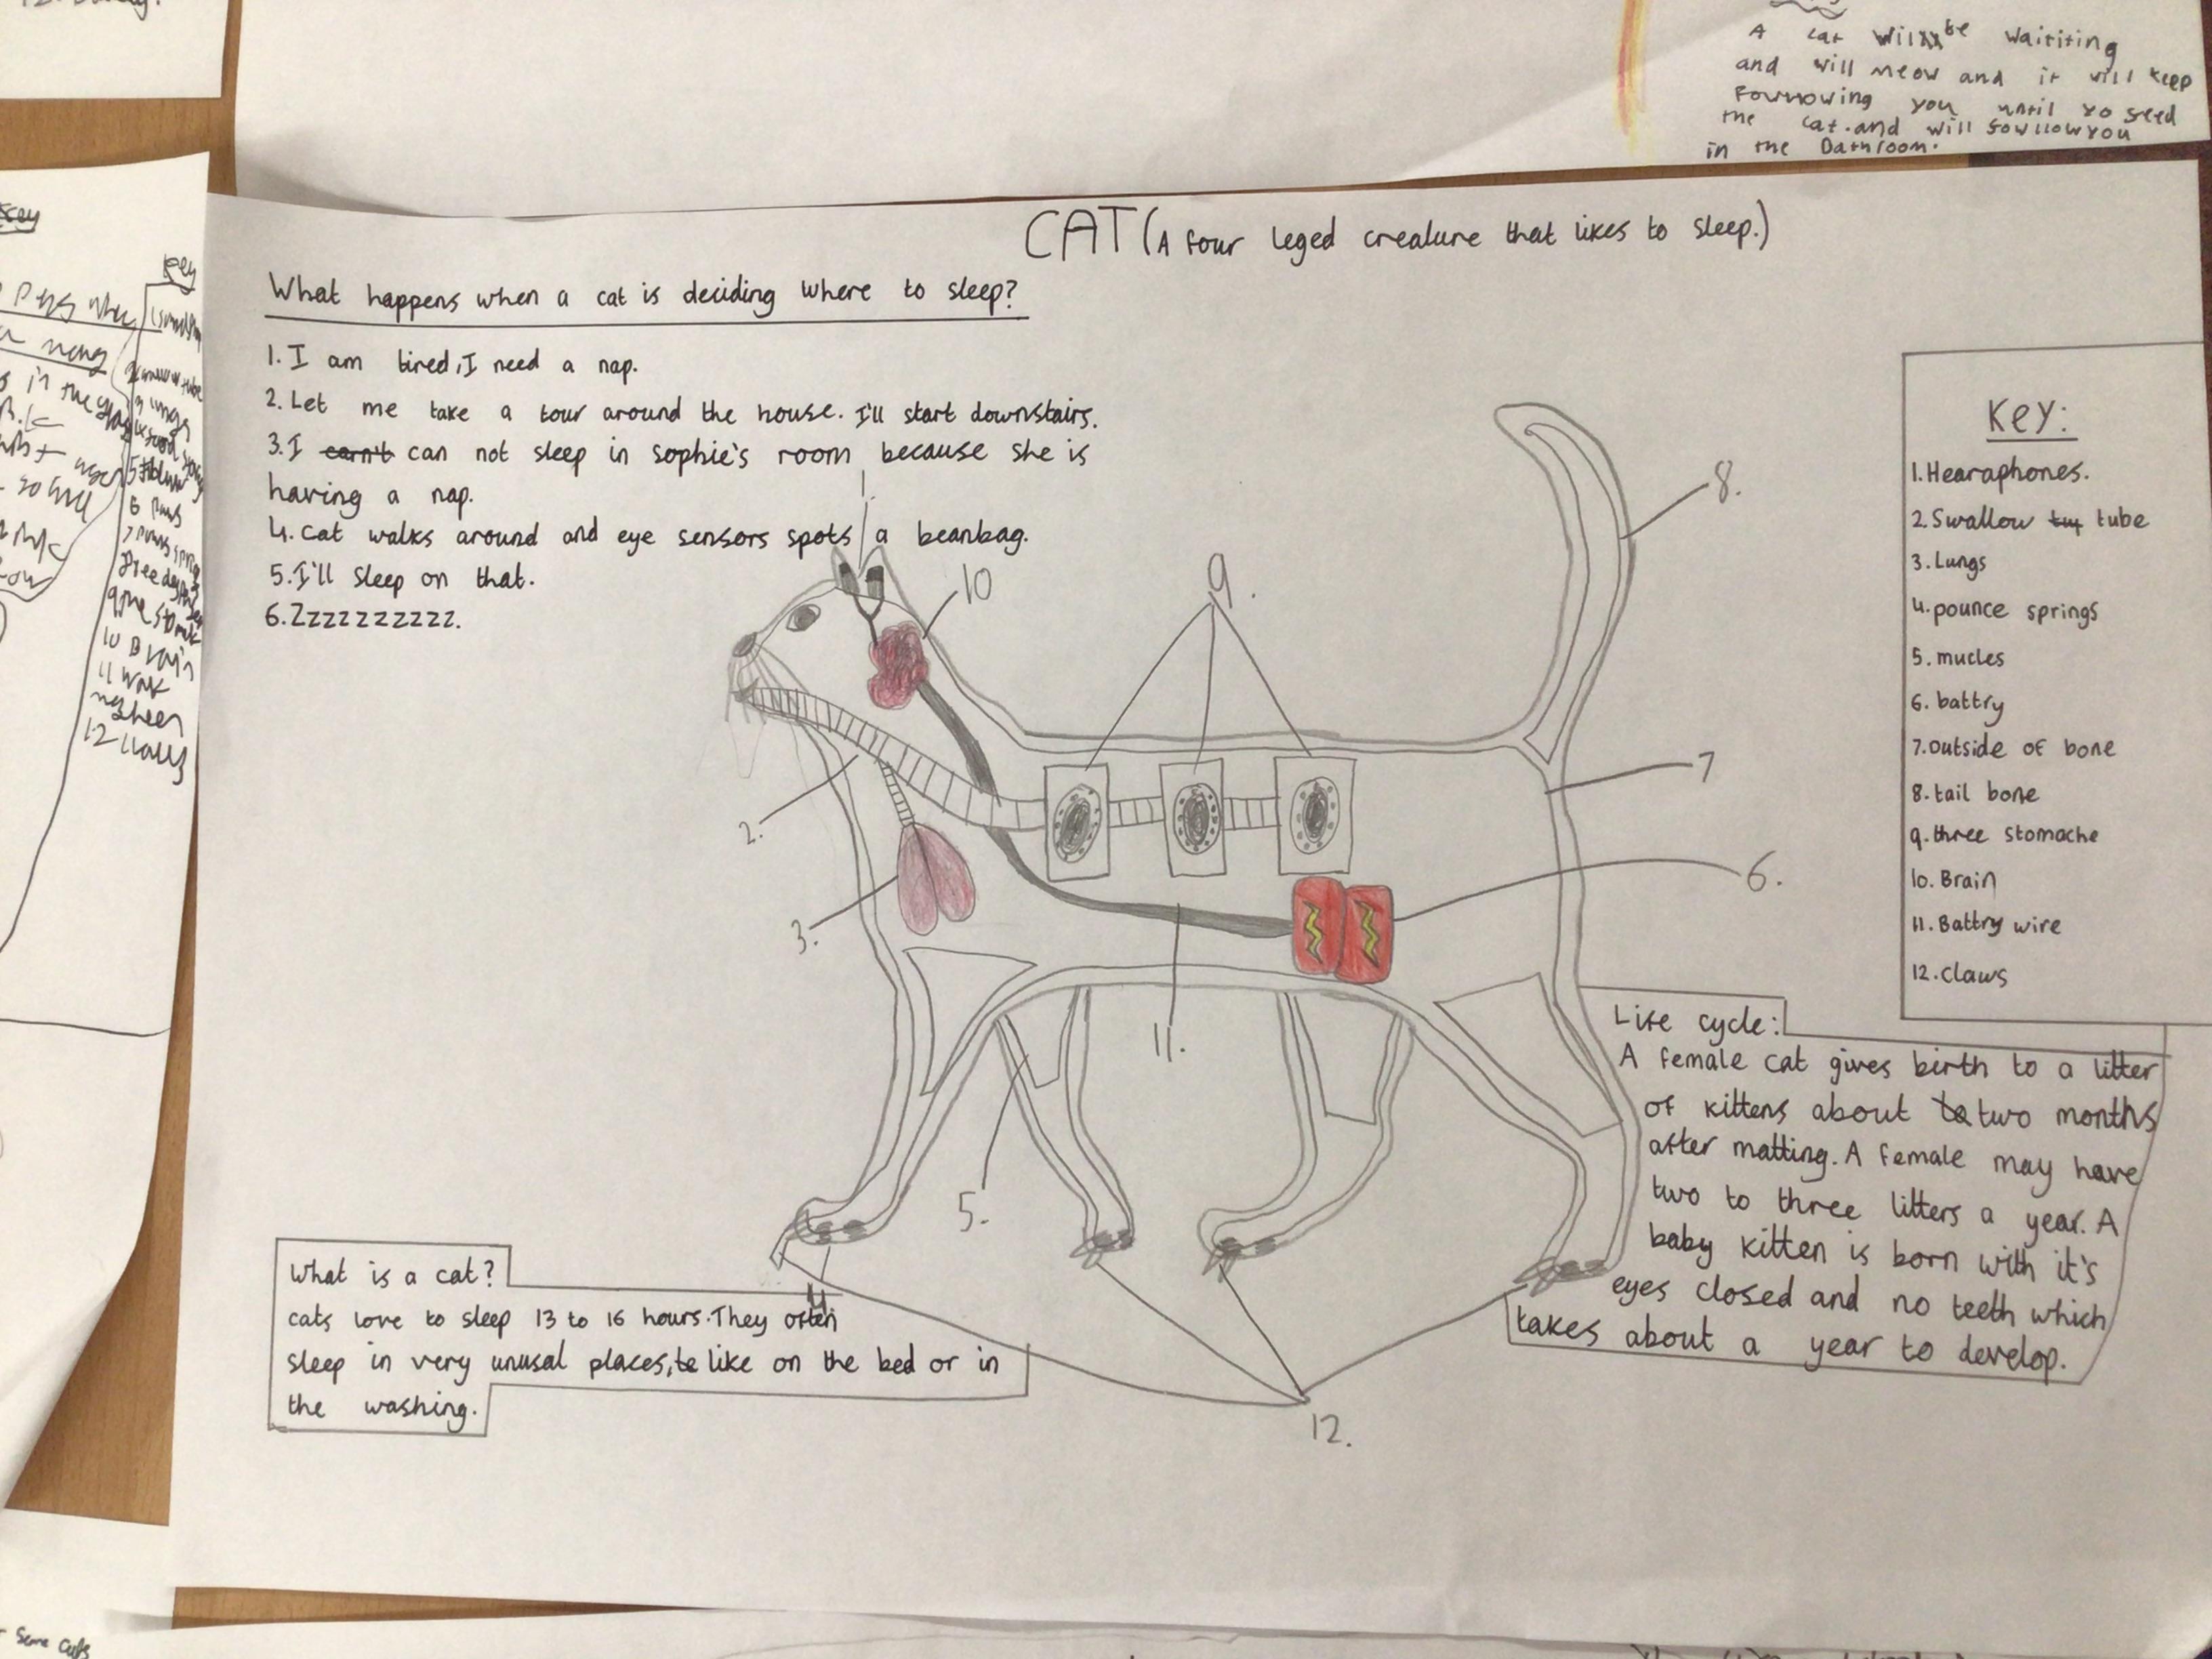 A cat will be waititing
and will meow and it will keep
Fowwowing you until yo seed
the cat. and will sowllow you
in the Bathroom.
CAT (A four leged creature that likes to sleep.)
What happens when a cat is deciding where to sleep?
1. I am tired, I need a nap.
2. Let me take a tour around the house. I'll start downstairs.
3. I carn't can not sleep in sophie's room because she is
having a nap.
4. cat walks around and eye sensors spots a beanbag.
5. I'll sleep on that.
6. Zzzzzzzzzzz.
1.
10
9.
8.
7
6.
2.
3.
11.
5.
4
12.
Key:
1. Hearaphones.
2. Swallow tube
3. Lungs
4. pounce springs
5. mucles
6. battry
7. outside of bone
8. tail bone
9. three stomache
10. Brain
11. Battry wire
12. claws
Life cycle:
A female cat gives birth to a litter
of kittens about two months
after matting. A female may have
two to three litters a year. A
baby kitten is born with it's
eyes closed and no teeth which
takes about a year to develop.
What is a cat?
cats love to sleep 13 to 16 hours. They often
sleep in very unusal places, like on the bed or in
the washing.
Key
key
in the
6 Paws
10 Brain
11 walk
12 claws
some cats